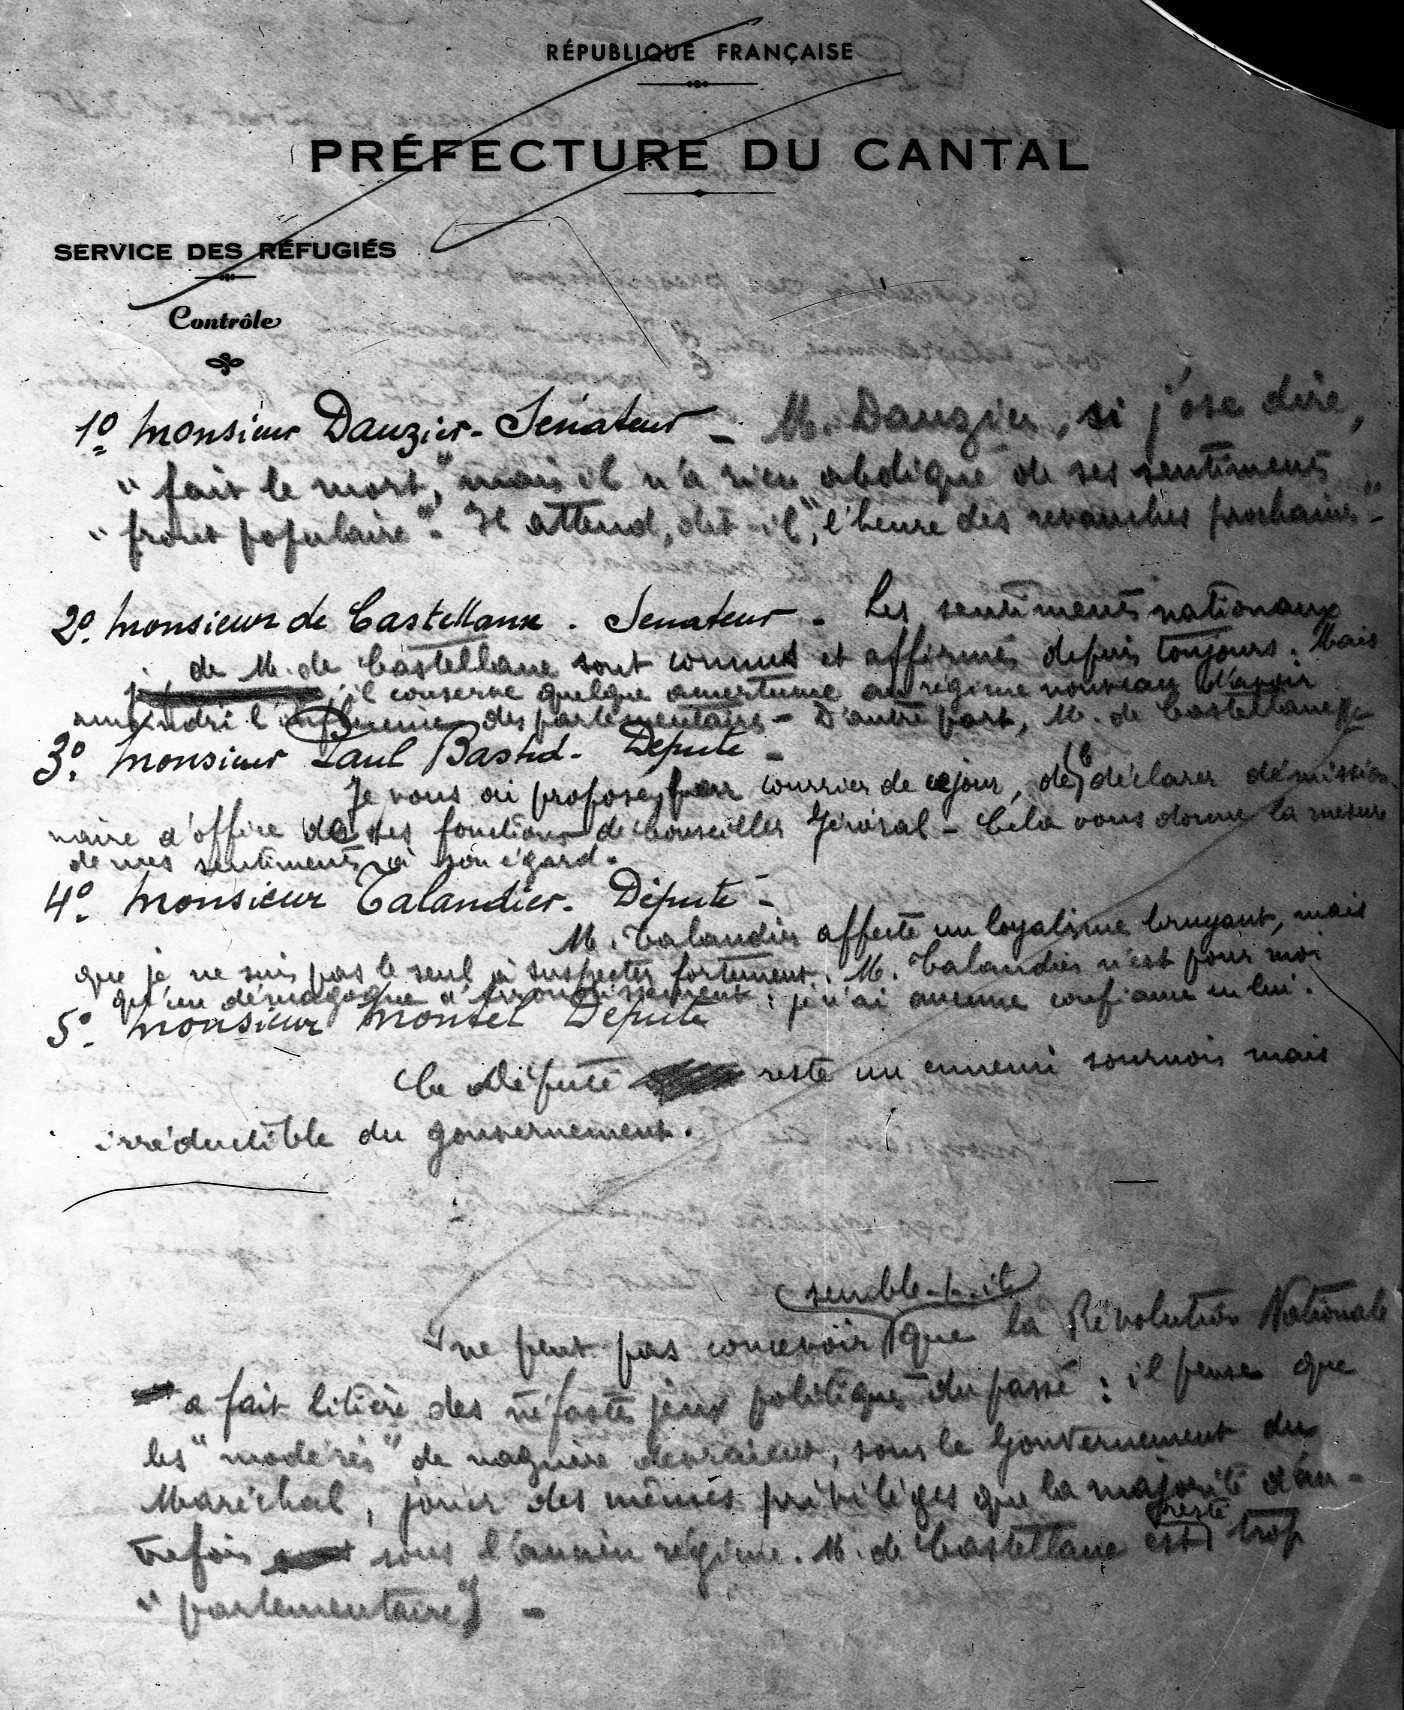 RÉPUBLIQUE FRANÇAISE
PRÉFECTURE DU CANTAL
SERVICE DES RÉFUGIÉS
Contrôle
1º Monsieur Dauzier - Sénateur - M. Dauzier, si j'ose dire,
" fait le mort," mais il n'a rien abdiqué de ses sentiments
" front populaire". Il attend, dit-il, "l'heure des revanches prochaines" -
2º. Monsieur de Castellane . Senateur - Les sentiments nationaux
de M. de Castellane sont connus et affirmés depuis toujours. Mais
il conserve quelque amertume au régime nouveau d'avoir
amoindri l'influence des parlementaires - D'autre part, M. de Castellane
3º. Monsieur Paul Bastid. Député -
Je vous ai proposé, par courrier de ce jour, de le déclarer démission
naire d'office de ses fonctions de Conseiller Général - Cela vous donne la mesure
de mes sentiments à son égard.
4º. Monsieur Talandier. Député -
M. Talandier affecte un loyalisme bruyant, mais
que je ne suis pas le seul à suspecter fortement. M. Talandier n'est pour moi
qu'un démagogue d'Arrondissement : je n'ai aucune confiance en lui.
5º. Monsieur Montel Député
Ce Député reste un ennemi sournois mais
irréductible du gouvernement.
semble-t-il
ne peut pas concevoir que la Révolution Nationale
a fait litière des néfastes jeux politiques du passé : il pense que
les "modérés" de naguère devraient, sous le Gouvernement du
Maréchal, jouir des mêmes privilèges que la majorité d'au-
reste
trefois sous l'ancien régime. M. de Castellane est trop
" parlementaire" -